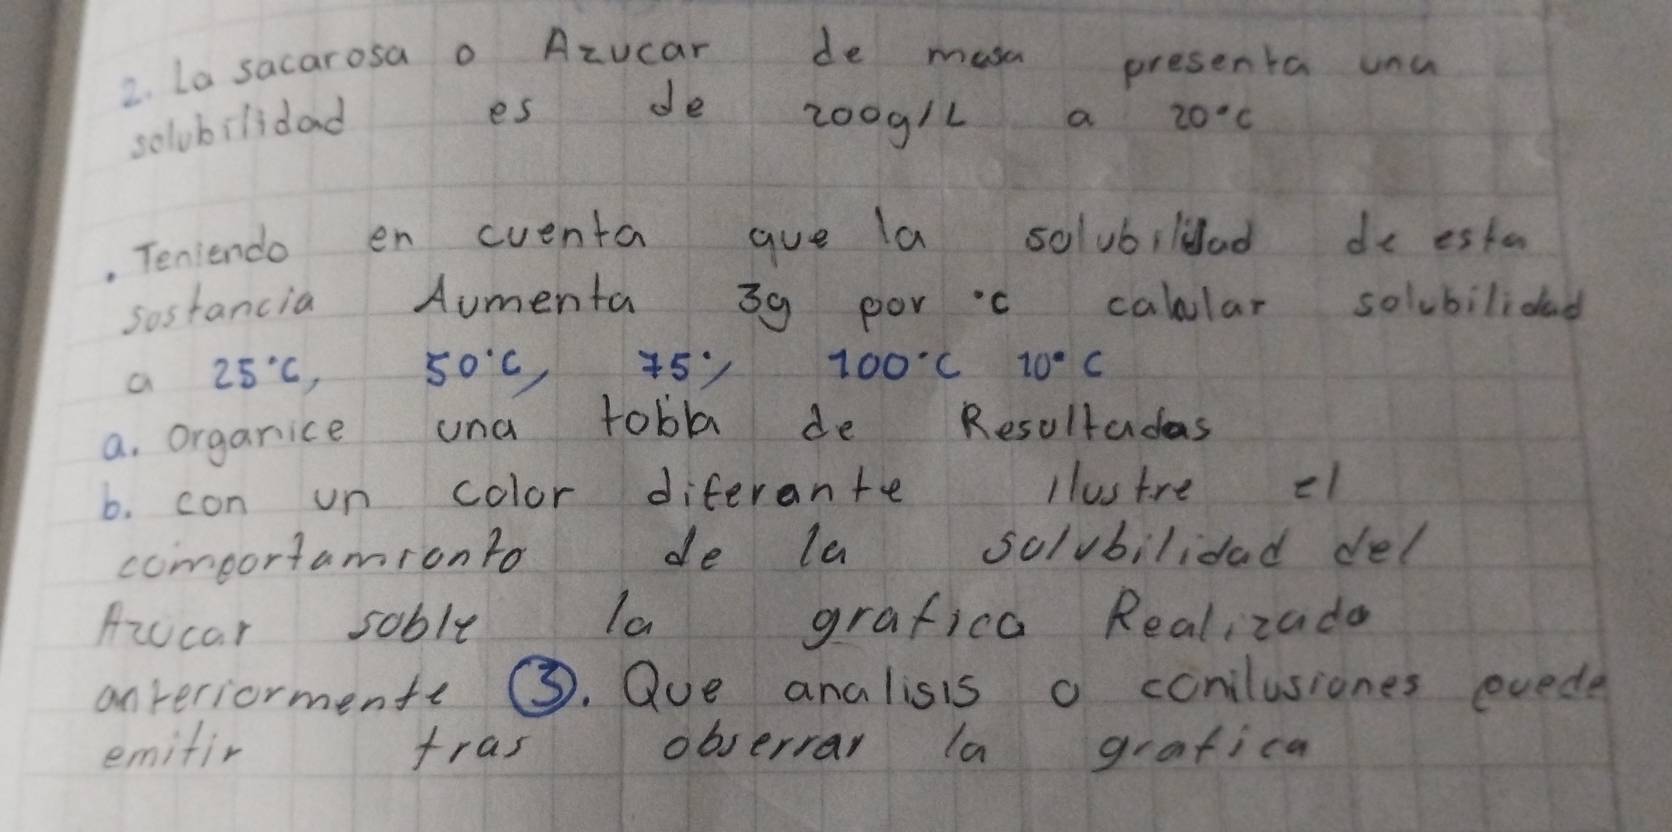 2. La sacarosa o Azucar de masa presenta una
solubilidad es de 200g/L a 20°C
. Teniendo en cuenta que la solubilidad de esta
sostancia Aumenta 3g por °c calular solubilidad
a 25°C, 50°C, 75°, 100°C 10°C
a. organice una tobla de Resultadas
b. con un color diferante ilustre el
comportamionto de la solubilidad del
Azucar soble la grafica Realizada
anteriormente ③. Que analisis o conilusiones puede
emitir tras obserrar la grafica